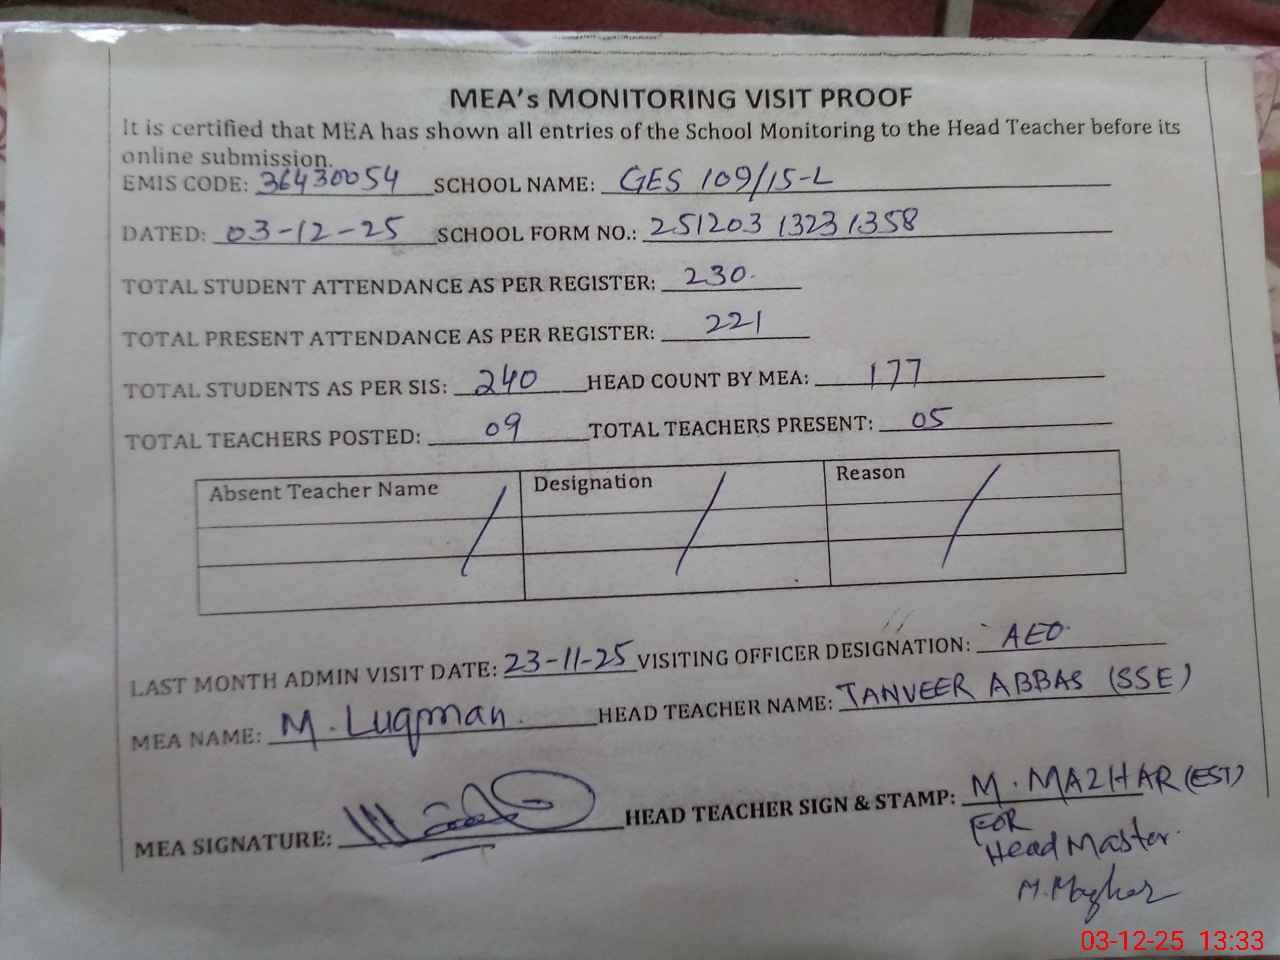 MEA's MONITORING VISIT PROOF
It is certified that MEA has shown all entries of the School Monitoring to the Head Teacher before its
online submission.
EMIS CODE: 36430054 SCHOOL NAME: GES 109/15-L
DATED: 03-12-25 SCHOOL FORM NO.: 25120313231358
TOTAL STUDENT ATTENDANCE AS PER REGISTER: 230
TOTAL PRESENT ATTENDANCE AS PER REGISTER: 221
TOTAL STUDENTS AS PER SIS: 240 HEAD COUNT BY MEA: 177
TOTAL TEACHERS POSTED: 09 TOTAL TEACHERS PRESENT: 05
Absent Teacher Name Designation Reason
LAST MONTH ADMIN VISIT DATE: 23-11-25 VISITING OFFICER DESIGNATION: AEO
MEA NAME: M. Luqman HEAD TEACHER NAME: TANVEER ABBAS (SSE)
MEA SIGNATURE: HEAD TEACHER SIGN & STAMP: M. MAZHAR (EST)
FOR
Head Master
M. Mazhar
03-12-25 13:33